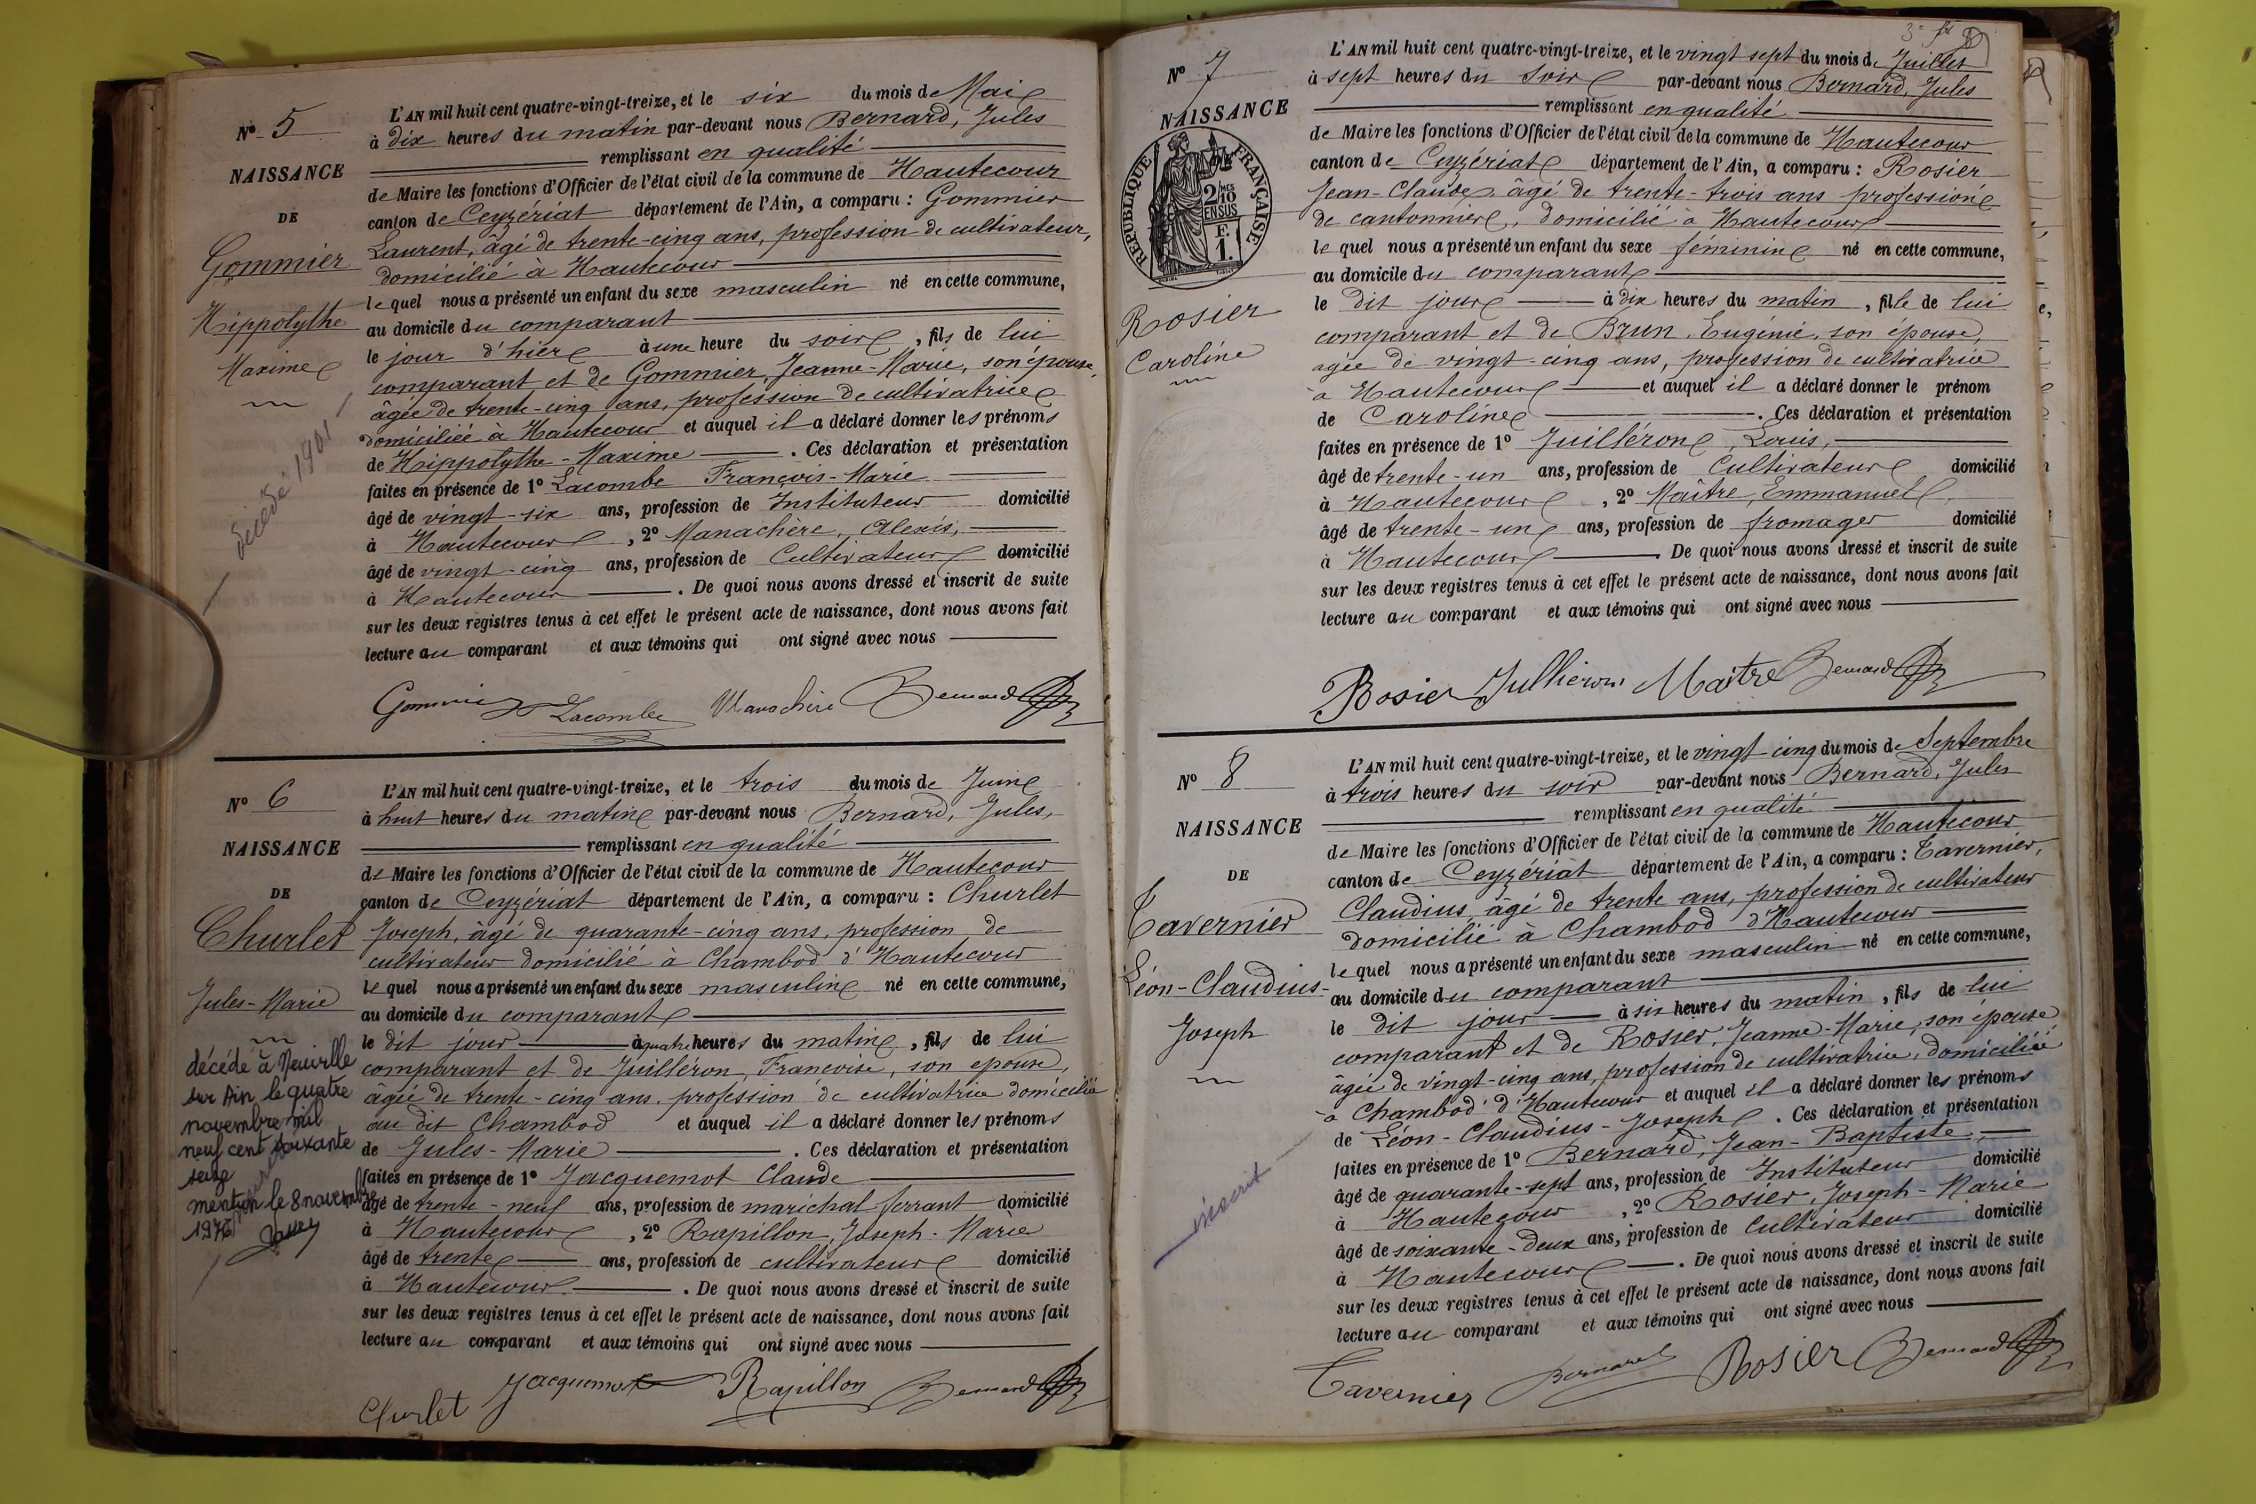 Nº 5
NAISSANCE
DE
Gommier
Hippolythe
Maxime
décédé 1901
L'AN mil huit cent quatre-vingt-treize, et le six du mois de Mai
à dix heures du matin par-devant nous Bernard, Jules
remplissant en qualité
de Maire les fonctions d'Officier de l'état civil de la commune de Hautecour
canton de Ceyzériat département de l'Ain, a comparu : Gommier
Laurent, âgé de trente-cinq ans, profession de cultivateur,
domicilié à Hautecour
le quel nous a présenté un enfant du sexe masculin né en cette commune,
au domicile du comparant
le jour d'hier à une heure du soir, fils de lui
comparant et de Gommier, Jeanne-Marie, son épouse,
âgée de trente-cinq ans, profession de cultivatrice
domiciliée à Hautecour et auquel il a déclaré donner les prénoms
de Hippolythe-Maxime. Ces déclaration et présentation
faites en présence de 1º Lacombe François-Marie
âgé de vingt-six ans, profession de Instituteur domicilié
à Hautecour, 2º Manachère, Alexis,
âgé de vingt-cinq ans, profession de Cultivateur domicilié
à Hautecour. De quoi nous avons dressé et inscrit de suite
sur les deux registres tenus à cet effet le présent acte de naissance, dont nous avons fait
lecture au comparant et aux témoins qui ont signé avec nous
Gommier Lacombe Manachère Bernard
Nº 6
NAISSANCE
DE
Churlet
Jules-Marie
décédé à Neuville
sur Ain le quatre
novembre mil
neuf cent soixante
seize
mention le 8 novembre
1976
L'AN mil huit cent quatre-vingt-treize, et le trois du mois de Juin
à huit heures du matin par-devant nous Bernard, Jules,
remplissant en qualité
de Maire les fonctions d'Officier de l'état civil de la commune de Hautecour
canton de Ceyzériat département de l'Ain, a comparu : Churlet
Joseph, âgé de quarante-cinq ans, profession de
cultivateur domicilié à Chambod d'Hautecour
le quel nous a présenté un enfant du sexe masculin né en cette commune,
au domicile du comparant
le dit jour à quatre heures du matin, fils de lui
comparant et de Juilléron, Françoise, son épouse,
âgée de trente-cinq ans, profession de cultivatrice domiciliée
au dit Chambod et auquel il a déclaré donner les prénoms
de Jules-Marie. Ces déclaration et présentation
faites en présence de 1º Jacquemot Claude
âgé de trente-neuf ans, profession de maréchal ferrant domicilié
à Hautecour, 2º Rapillon, Joseph-Marie
âgé de trente ans, profession de cultivateur domicilié
à Hautecour. De quoi nous avons dressé et inscrit de suite
sur les deux registres tenus à cet effet le présent acte de naissance, dont nous avons fait
lecture au comparant et aux témoins qui ont signé avec nous
Churlet Jacquemot Rapillon Bernard
Nº 7
NAISSANCE
RÉPUBLIQUE FRANÇAISE
2/10 MES
EN SUS
F.
1.
Rosier
Caroline
L'AN mil huit cent quatre-vingt-treize, et le vingt sept du mois de Juillet
à sept heures du soir par-devant nous Bernard, Jules
remplissant en qualité
de Maire les fonctions d'Officier de l'état civil de la commune de Hautecour
canton de Ceyzériat département de l'Ain, a comparu : Rosier
Jean-Claude, âgé de trente-trois ans profession
de cantonnier, domicilié à Hautecour
le quel nous a présenté un enfant du sexe féminin né en cette commune,
au domicile du comparant
le dit jour à dix heures du matin, fille de lui
comparant et de Brun, Eugénie, son épouse,
agée de vingt-cinq ans, profession de cultivatrice
à Hautecour et auquel il a déclaré donner le prénom
de Caroline. Ces déclaration et présentation
faites en présence de 1º Juilléron, Louis,
âgé de trente-un ans, profession de Cultivateur domicilié
à Hautecour, 2º Maître, Emmanuel
âgé de trente-un ans, profession de fromager domicilié
à Hautecour. De quoi nous avons dressé et inscrit de suite
sur les deux registres tenus à cet effet le présent acte de naissance, dont nous avons fait
lecture au comparant et aux témoins qui ont signé avec nous
Rosier Jullieron Maître Bernard
Nº 8
NAISSANCE
DE
Tavernier
Léon-Claudius-
Joseph
inscrit
L'AN mil huit cent quatre-vingt-treize, et le vingt-cinq du mois de Septembre
à trois heures du soir par-devant nous Bernard, Jules
remplissant en qualité
de Maire les fonctions d'Officier de l'état civil de la commune de Hautecour
canton de Ceyzériat département de l'Ain, a comparu : Tavernier,
Claudius, âgé de trente ans, profession de cultivateur
domicilié à Chambod d'Hautecour
le quel nous a présenté un enfant du sexe masculin né en cette commune,
au domicile du comparant
le dit jour à six heures du matin, fils de lui
comparant et de Rosier, Jeanne-Marie, son épouse
âgée de vingt-cinq ans, profession de cultivatrice, domiciliée
à Chambod d'Hautecour et auquel il a déclaré donner les prénoms
de Léon-Claudius-Joseph. Ces déclaration et présentation
faites en présence de 1º Bernard, Jean-Baptiste,
âgé de quarante-sept ans, profession de Instituteur domicilié
à Hautecour, 2º Rosier, Joseph-Marie
âgé de soixante-deux ans, profession de Cultivateur domicilié
à Hautecour. De quoi nous avons dressé et inscrit de suite
sur les deux registres tenus à cet effet le présent acte de naissance, dont nous avons fait
lecture au comparant et aux témoins qui ont signé avec nous
Tavernier Bernard Rosier Bernard